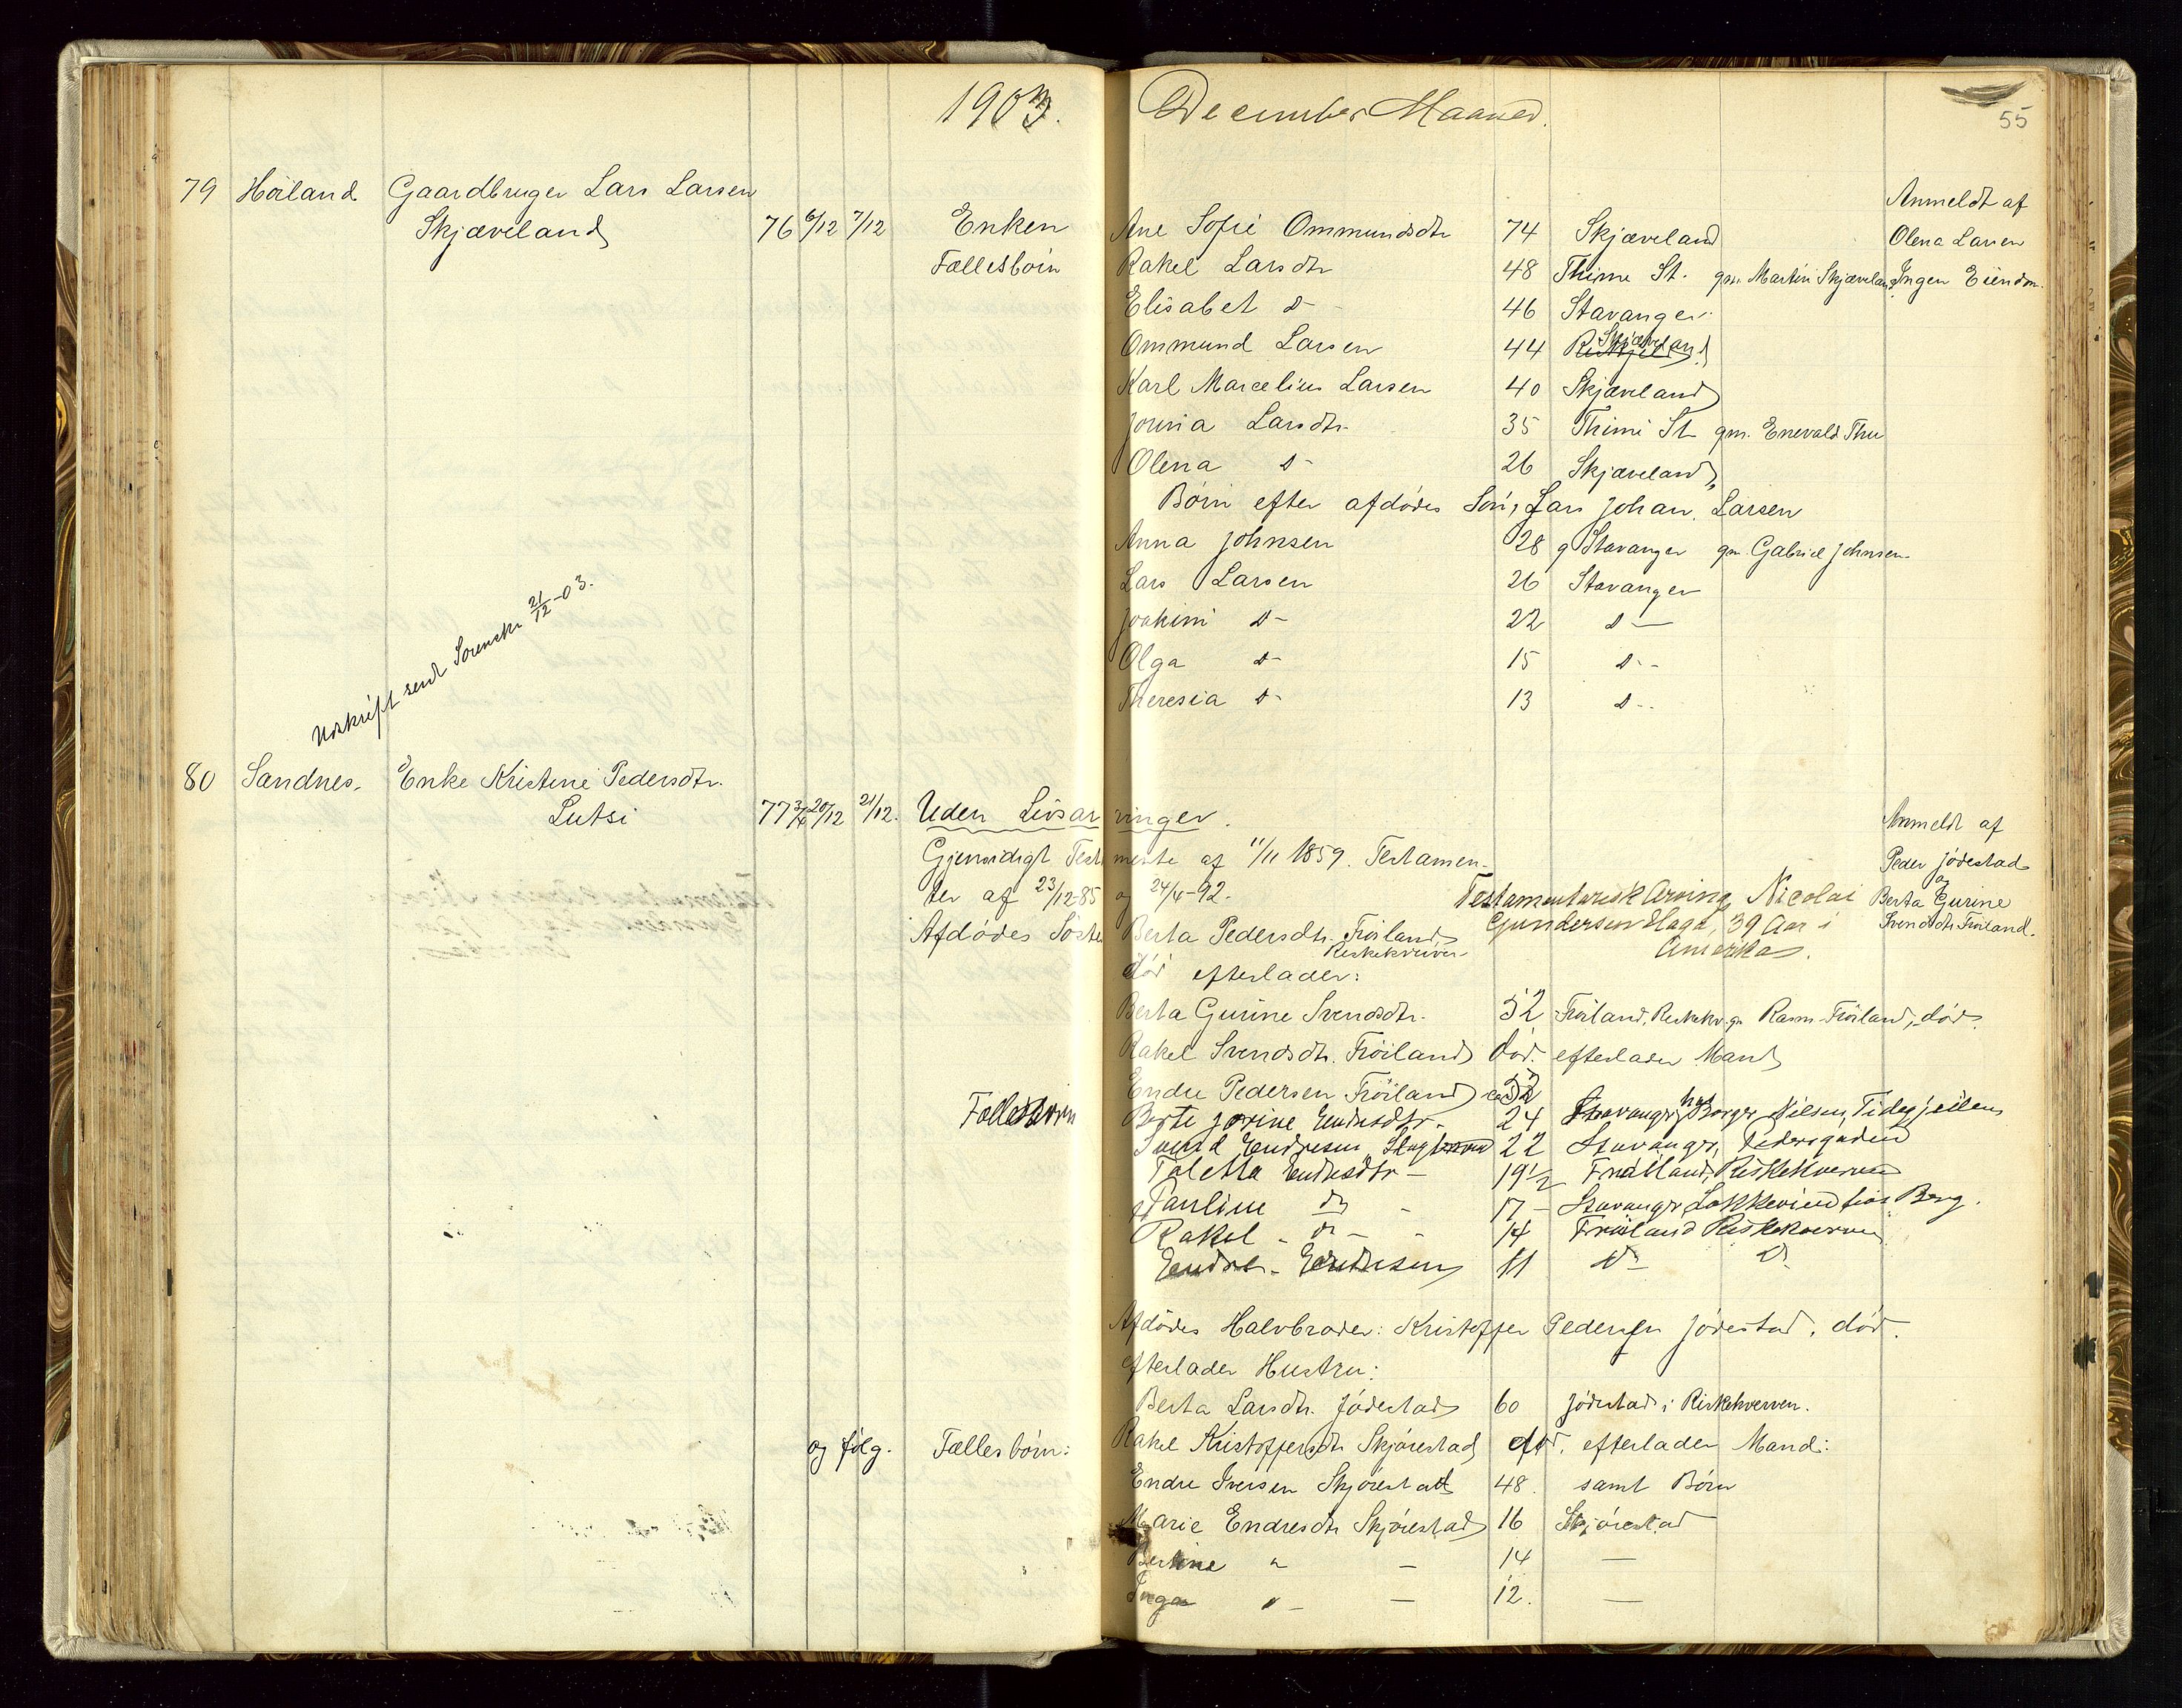 1903. December Maaned.
55
79 Høiland Gaardbruger Lars Larsen
Skjæveland 76 6/12 7/12 Enken Ane Sofie Ommundsdtr 74 Skjæveland
Anmeldt af
Olena Larsen
Ingen Eiendom.
Fællesbørn Rakel Larsdtr 48 Thime St. gm. Martin Skjæveland
Elisabet d- 46 Stavanger.
Ommund Larsen 44 Skjæveland
Karl Marcelius Larsen 40 Skjæveland
Larsdtr. 35 Thime St. gm. Enevald Thu
Olena d- 26 Skjæveland
Børn efter afdødes Søn, Lars Johan Larsen
Anna Johnsen 28 g Stavanger gm. Gabriel Johnsen
Lars Larsen 26 Stavanger
Joakim d- 22 d-
Olga d- 15 d-
Theresia d- 13 d-
Udskrift send Sorenskr 21/12-03.
80 Sandnes. Enke Kristine Pedersdtr.
Lutsi 77 3/4 20/12 21/12. Uden Livsarvinger.
Anmeldt af
Peder Jødestad
og
Berta Gurine
Svendsdtr. Frøiland.
Gjensidigt Testamente af 11/11 1859. Testamen-
ter af 23/12-85 og 24/4-92.
Testamentarisk Arving Nicolai
Gundersen Haga, 39 Aar i
Amerika.
Afdødes Søster Berta Pedersdtr. Frøiland
Riskekverven
død efterlader:
Berta Gurine Svendsdtr. 52 Frøiland, Riskekv. gm Rasm. Frøiland, død.
Rakel Svendsdtr. Frøiland død. efterlader Mand
Endre Pedersen Frøiland ca 52
Fællesbørn Berte Jorine Endresdtr. 24 Stavanger, hos Borger Nilsen, Tidegjeilen
Svend Endresen 22 Stavanger, Pedersgaden
Taletta Endresdtr - 19 1/2 Frøiland, Riskekverven
Pauline do - 17 - Stavanger, Løkkeveien hos Berg.
Rakel - do - 14 Frøiland Riskekverven
Endre - Endresen 11 do do
Afdødes Halvbroder: Kristoffer Pedersen Jødestad, død.
efterlader Hustru:
Berta Larsdtr. Jødestad 60 Jødestad i Riskekverven.
og følg. Fællesbørn: Rakel Kristoffersdtr Skjørestad død. efterlader Mand:
Endre Iversen Skjørestad 48. samt Børn
Marie Endresdtr Skjørestad 16 Skjørestad
Bertine " - 14 -
Inga " - 12. -